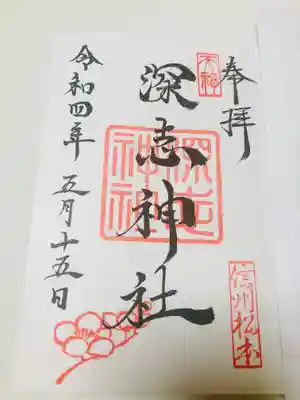 奉拝
天神
深志神社
深志
神社
信州松本
令和四年 五月十五日